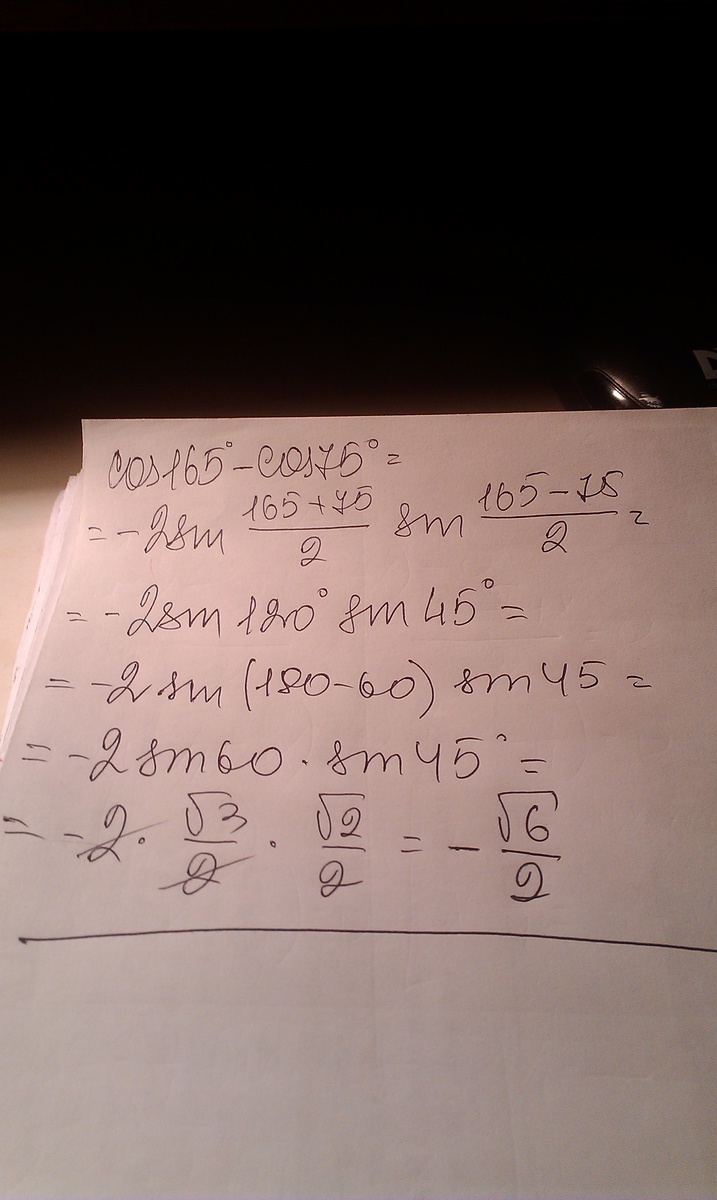 cos165°-cos75°=
=-2sin (165+75)/2 sin (165-75)/2=
=-2sin120° sin45°=
=-2sin(180-60) sin45=
=-2sin60·sin45°=
=-2·√3/2·√2/2=-√6/2